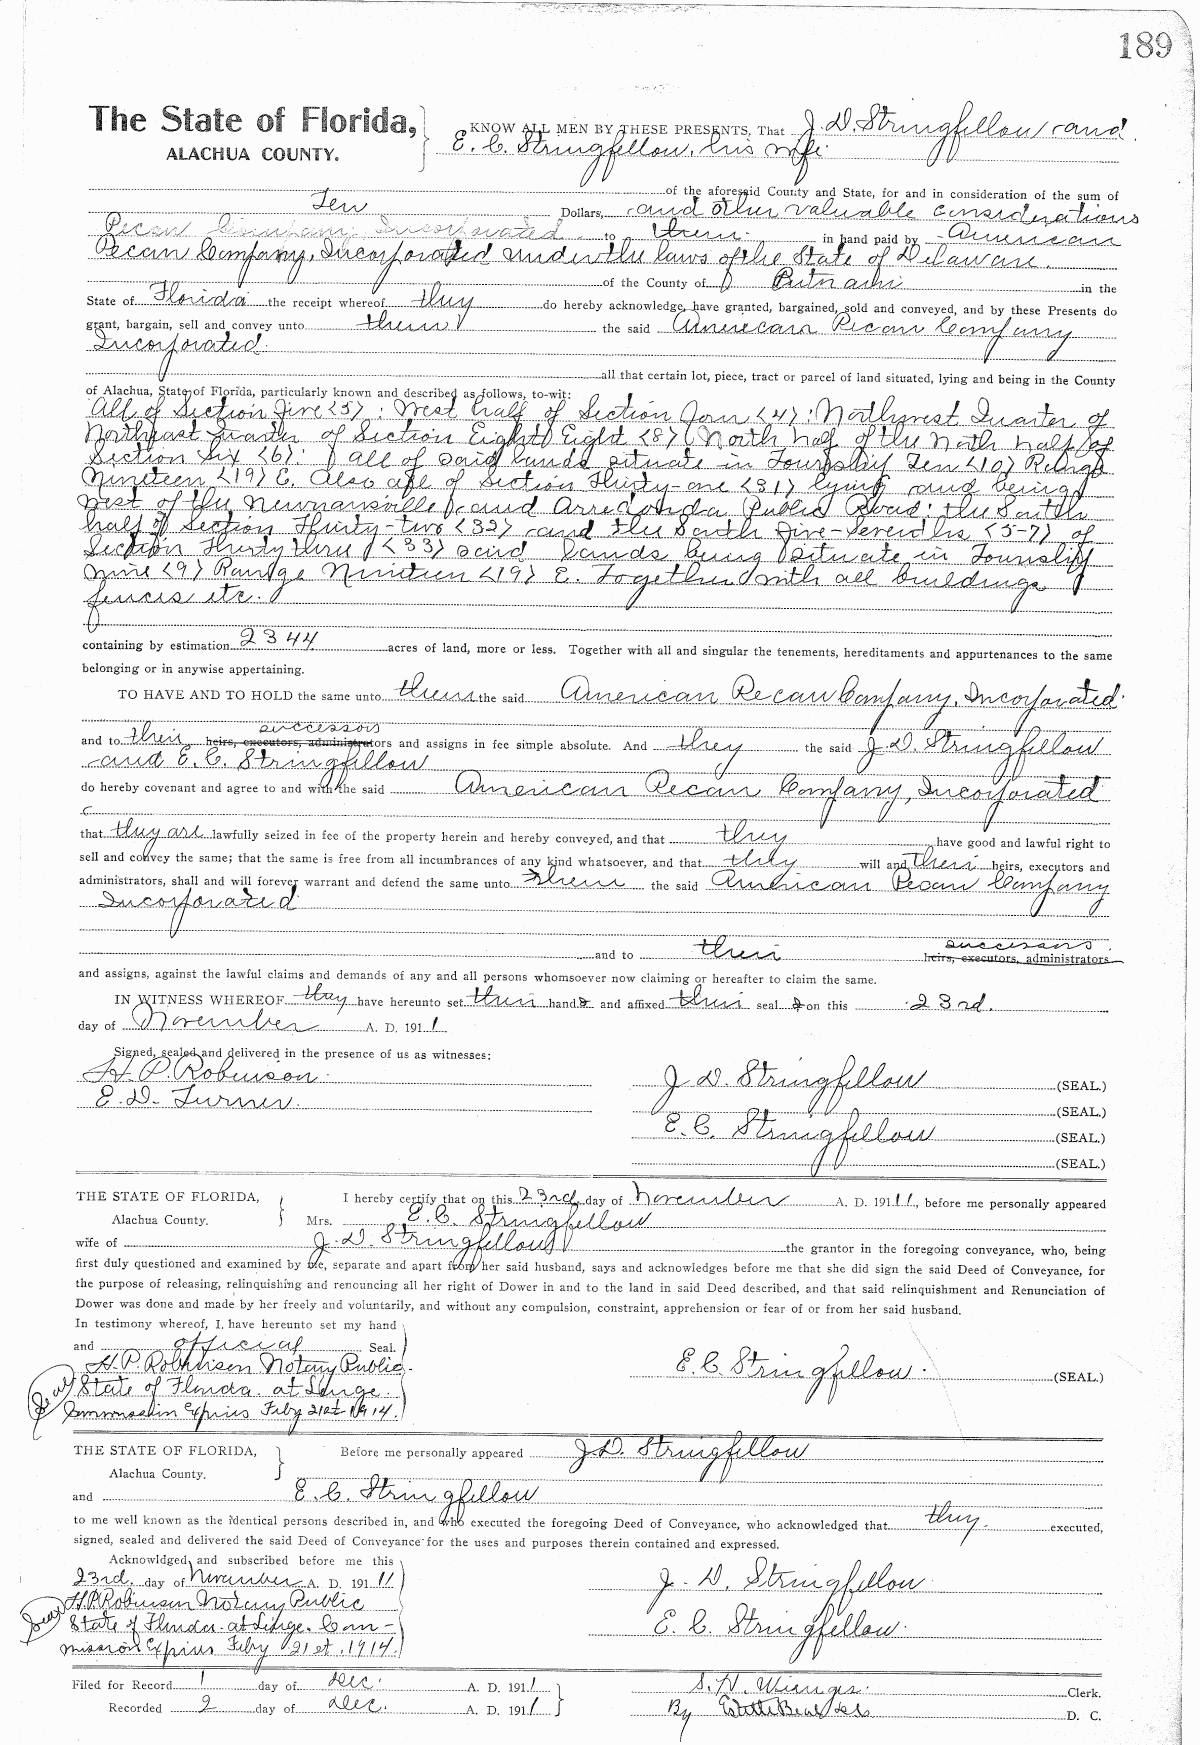 189
The State of Florida, KNOW ALL MEN BY THESE PRESENTS, That J. D. Stringfellow and
ALACHUA COUNTY. E. C. Stringfellow, his wife
of the aforesaid County and State, for and in consideration of the sum of
Ten Dollars, and other valuable considerations
Pecan Company Incorporated to them in hand paid by American
Pecan Company, Incorporated under the laws of the State of Delaware.
of the County of Putnam in the
State of Florida the receipt whereof they do hereby acknowledge, have granted, bargained, sold and conveyed, and by these Presents do
grant, bargain, sell and convey unto them the said American Pecan Company
Incorporated
all that certain lot, piece, tract or parcel of land situated, lying and being in the County
of Alachua, State of Florida, particularly known and described as follows, to-wit:
All of Section Five <5> : West half of Section Four <4> : Northwest Quarter of
Northeast Quarter of Section Eight <8> North half of the North half of
Section Six <6> : All of said lands situate in Township Ten <10> Range
Nineteen <19> E. Also all of Section Thirty-one <31> lying and being
West of the Newnansville and Arredonda Public Road; the South
half of Section Thirty-two <32> and the South Five-Sevenths <5-7> of
Section Thirty three <33> said Lands being situate in Township
nine <9> Range Nineteen <19> E. Together with all buildings
fences etc.
containing by estimation 2344 acres of land, more or less. Together with all and singular the tenements, hereditaments and appurtenances to the same
belonging or in anywise appertaining.
TO HAVE AND TO HOLD the same unto them the said American Pecan Company, Incorporated
successors
and to their heirs, executors, administrators and assigns in fee simple absolute. And they the said J. D. Stringfellow
and E. C. Stringfellow
do hereby covenant and agree to and with the said American Pecan Company, Incorporated
that they are lawfully seized in fee of the property herein and hereby conveyed, and that they have good and lawful right to
sell and convey the same; that the same is free from all incumbrances of any kind whatsoever, and that they will and their heirs, executors and
administrators, shall and will forever warrant and defend the same unto them the said American Pecan Company
Incorporated
successors
and to their heirs, executors, administrators
and assigns, against the lawful claims and demands of any and all persons whomsoever now claiming or hereafter to claim the same.
IN WITNESS WHEREOF they have hereunto set their hands and affixed their seal s on this 23rd.
day of November A. D. 1911
Signed, sealed and delivered in the presence of us as witnesses:
H. P. Robinson J. D. Stringfellow (SEAL.)
E. D. Turner. (SEAL.)
E. C. Stringfellow (SEAL.)
(SEAL.)
THE STATE OF FLORIDA, I hereby certify that on this 23rd day of November A. D. 19111, before me personally appeared
Alachua County. Mrs. E. C. Stringfellow
wife of J. D. Stringfellow the grantor in the foregoing conveyance, who, being
first duly questioned and examined by me, separate and apart from her said husband, says and acknowledges before me that she did sign the said Deed of Conveyance, for
the purpose of releasing, relinquishing and renouncing all her right of Dower in and to the land in said Deed described, and that said relinquishment and Renunciation of
Dower was done and made by her freely and voluntarily, and without any compulsion, constraint, apprehension or fear of or from her said husband.
In testimony whereof, I have hereunto set my hand
and official Seal.
H. P. Robinson Notary Public. E. C Stringfellow. (SEAL.)
Seal State of Florida at Large.
Commission Expires Feby 21st 1914.
THE STATE OF FLORIDA, Before me personally appeared J. D. Stringfellow
Alachua County.
and E. C. Stringfellow
to me well known as the identical persons described in, and who executed the foregoing Deed of Conveyance, who acknowledged that they executed,
signed, sealed and delivered the said Deed of Conveyance for the uses and purposes therein contained and expressed.
Acknowldged and subscribed before me this
23rd. day of November A. D. 19111 J. D. Stringfellow
H. P. Robinson Notary Public
Seal State of Florida at Large. Com- E. C. Stringfellow.
mission Expires Feby 21st. 1914.
Filed for Record 1 day of Dec. A. D. 1911 S. H. Wienges. Clerk.
Recorded 2 day of Dec. A. D. 1911 By D. C.